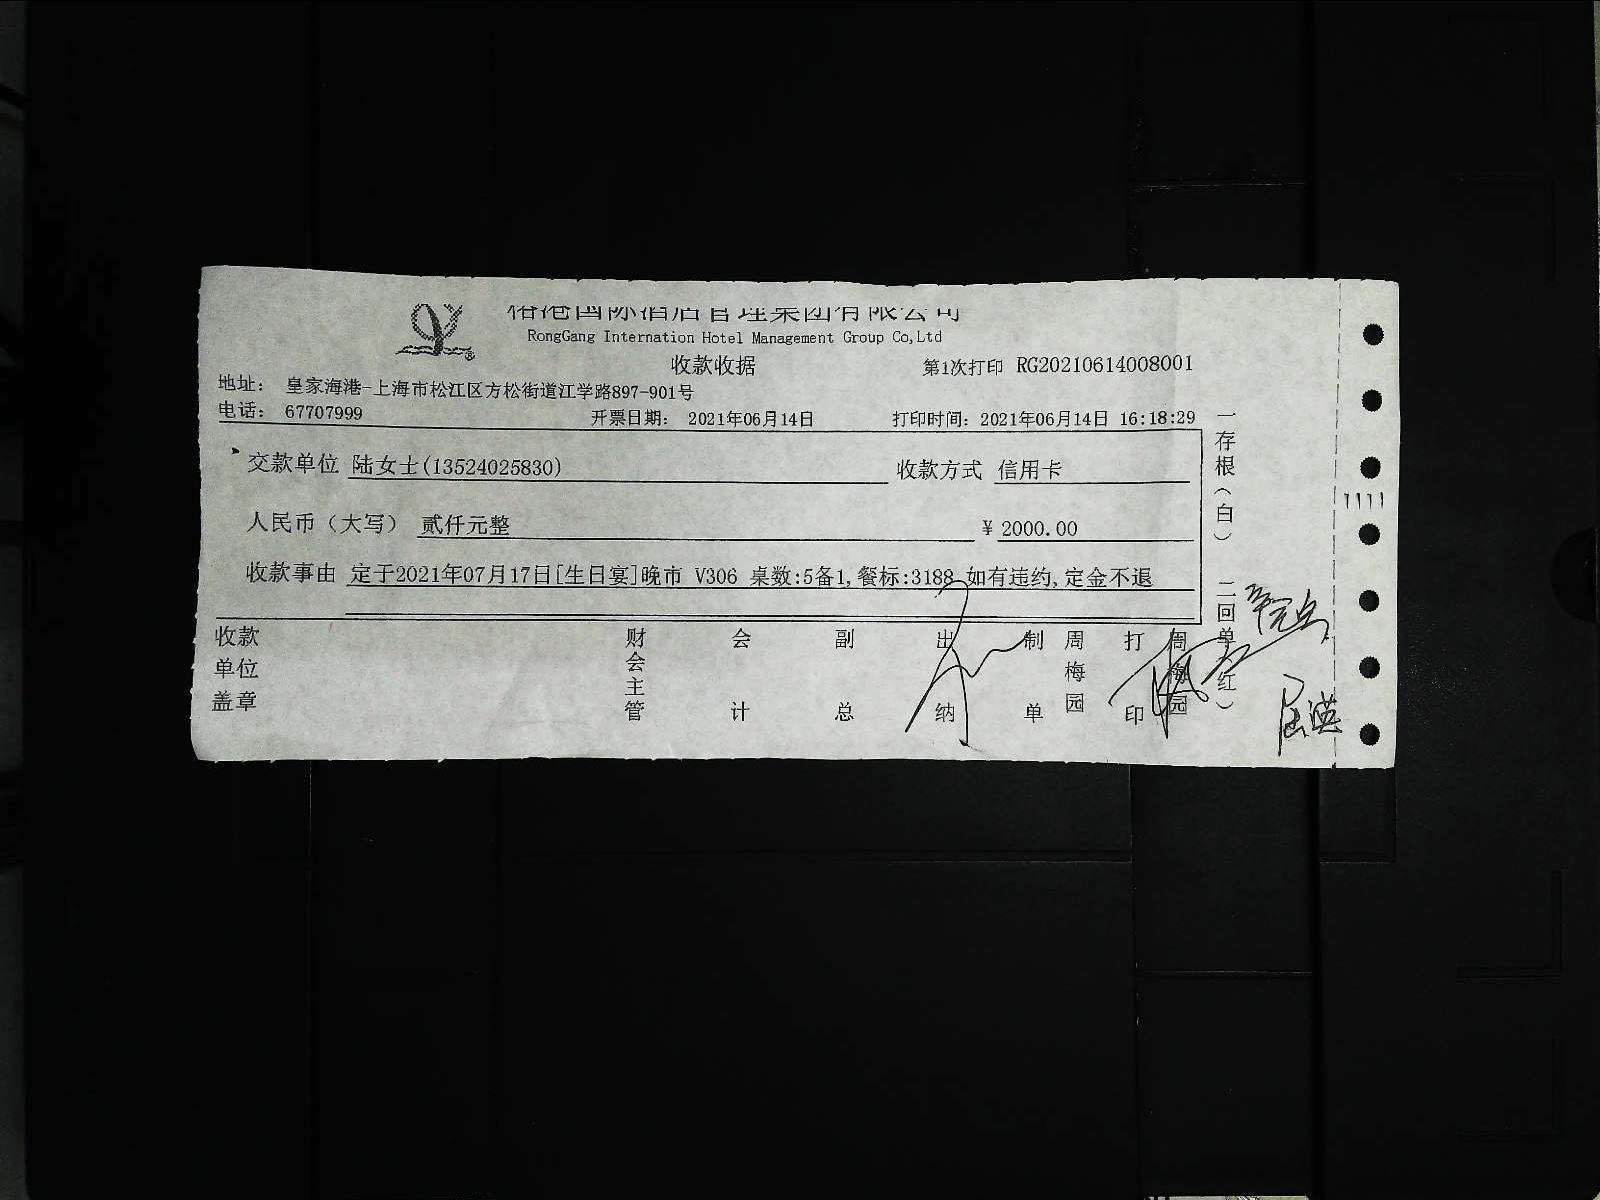 国际酒店管理集团有限公司
RongGang Internation Hotel Management Group Co,Ltd
收款收据
第1次打印 RG20210614008001
地址： 皇家海港-上海市松江区方松街道江学路897-901号
电话： 67707999 开票日期： 2021年06月14日 打印时间： 2021年06月14日 16:18:29
交款单位 陆女士(13524025830) 收款方式 信用卡
人民币（大写） 贰仟元整 ¥ 2000.00
收款事由 定于2021年07月17日[生日宴]晚市 V306 桌数:5备1,餐标:3188 如有违约,定金不退
收款单位盖章 财会主管 会计 副总 出纳 制单 周梅园 打印 周梅园
一存根（白） 二回单（红）